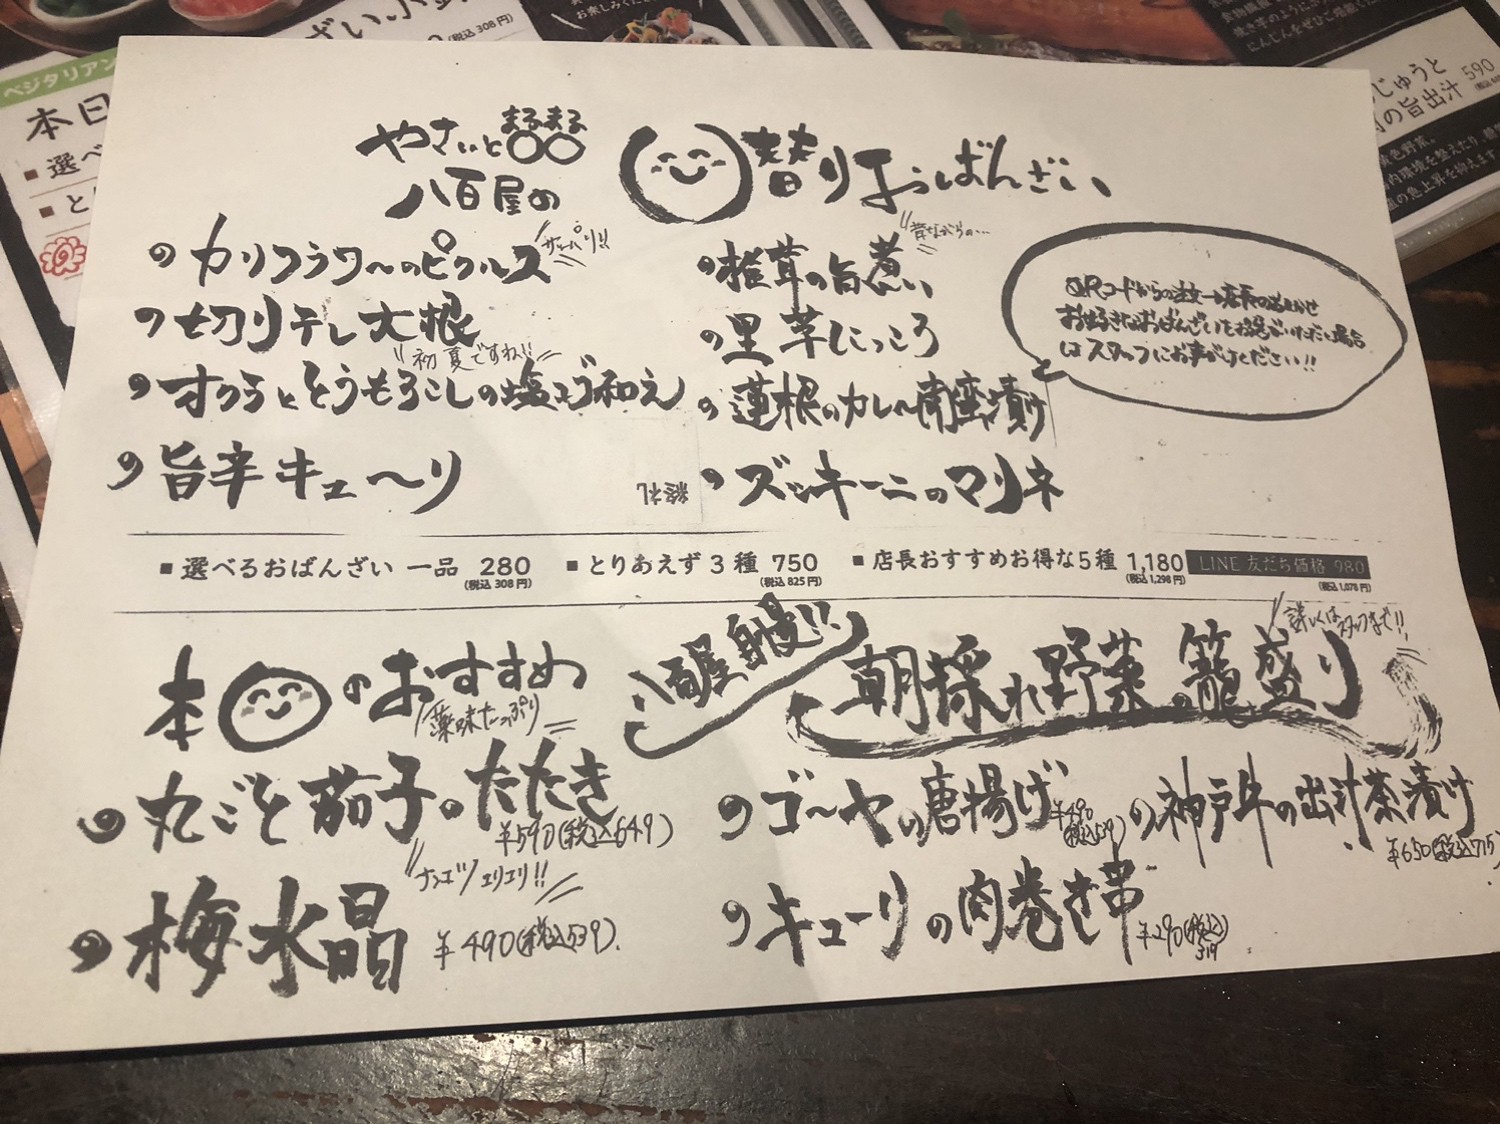 やさいと〇〇
まるまる
八百屋の
替りおばんざい
カリフラワーのピクルス
サッパリ!!
切り干し大根
初夏ですね!!
オクラととうもろこしの塩ごま和え
旨辛キューリ
昔ながらの…
椎茸の旨煮
里芋にっころ
蓮根のカレー南蛮漬け
ズッキーニのマリネ
QRコードからの注文→店長のおまかせ
お好きなおばんざいをお選びいただく場合
はスタッフにお声がけください!!
■選べるおばんざい 一品 280
(税込 308円)
■とりあえず3種 750
(税込 825円)
■店長おすすめお得な5種 1,180
(税込 1,298円)
LINE 友だち価格 980
(税込 1,078円)
本日のおすすめ
薬味たっぷり
丸ごと茄子のたたき
¥590(税込649)
ナンコツコリコリ!!
梅水晶 ¥490(税込539)
八百屋自慢!!
朝採れ野菜の籠盛り
詳しくはスタッフまで!!
ゴーヤの唐揚げ
¥490
(税込539)
神戸牛の出汁茶漬け
¥650(税込715)
キューリの肉巻き串
¥290(税込
319
ベジタリアン
本日
■選べ
■と
(税込 308円)
じゅうと
の旨出汁 590